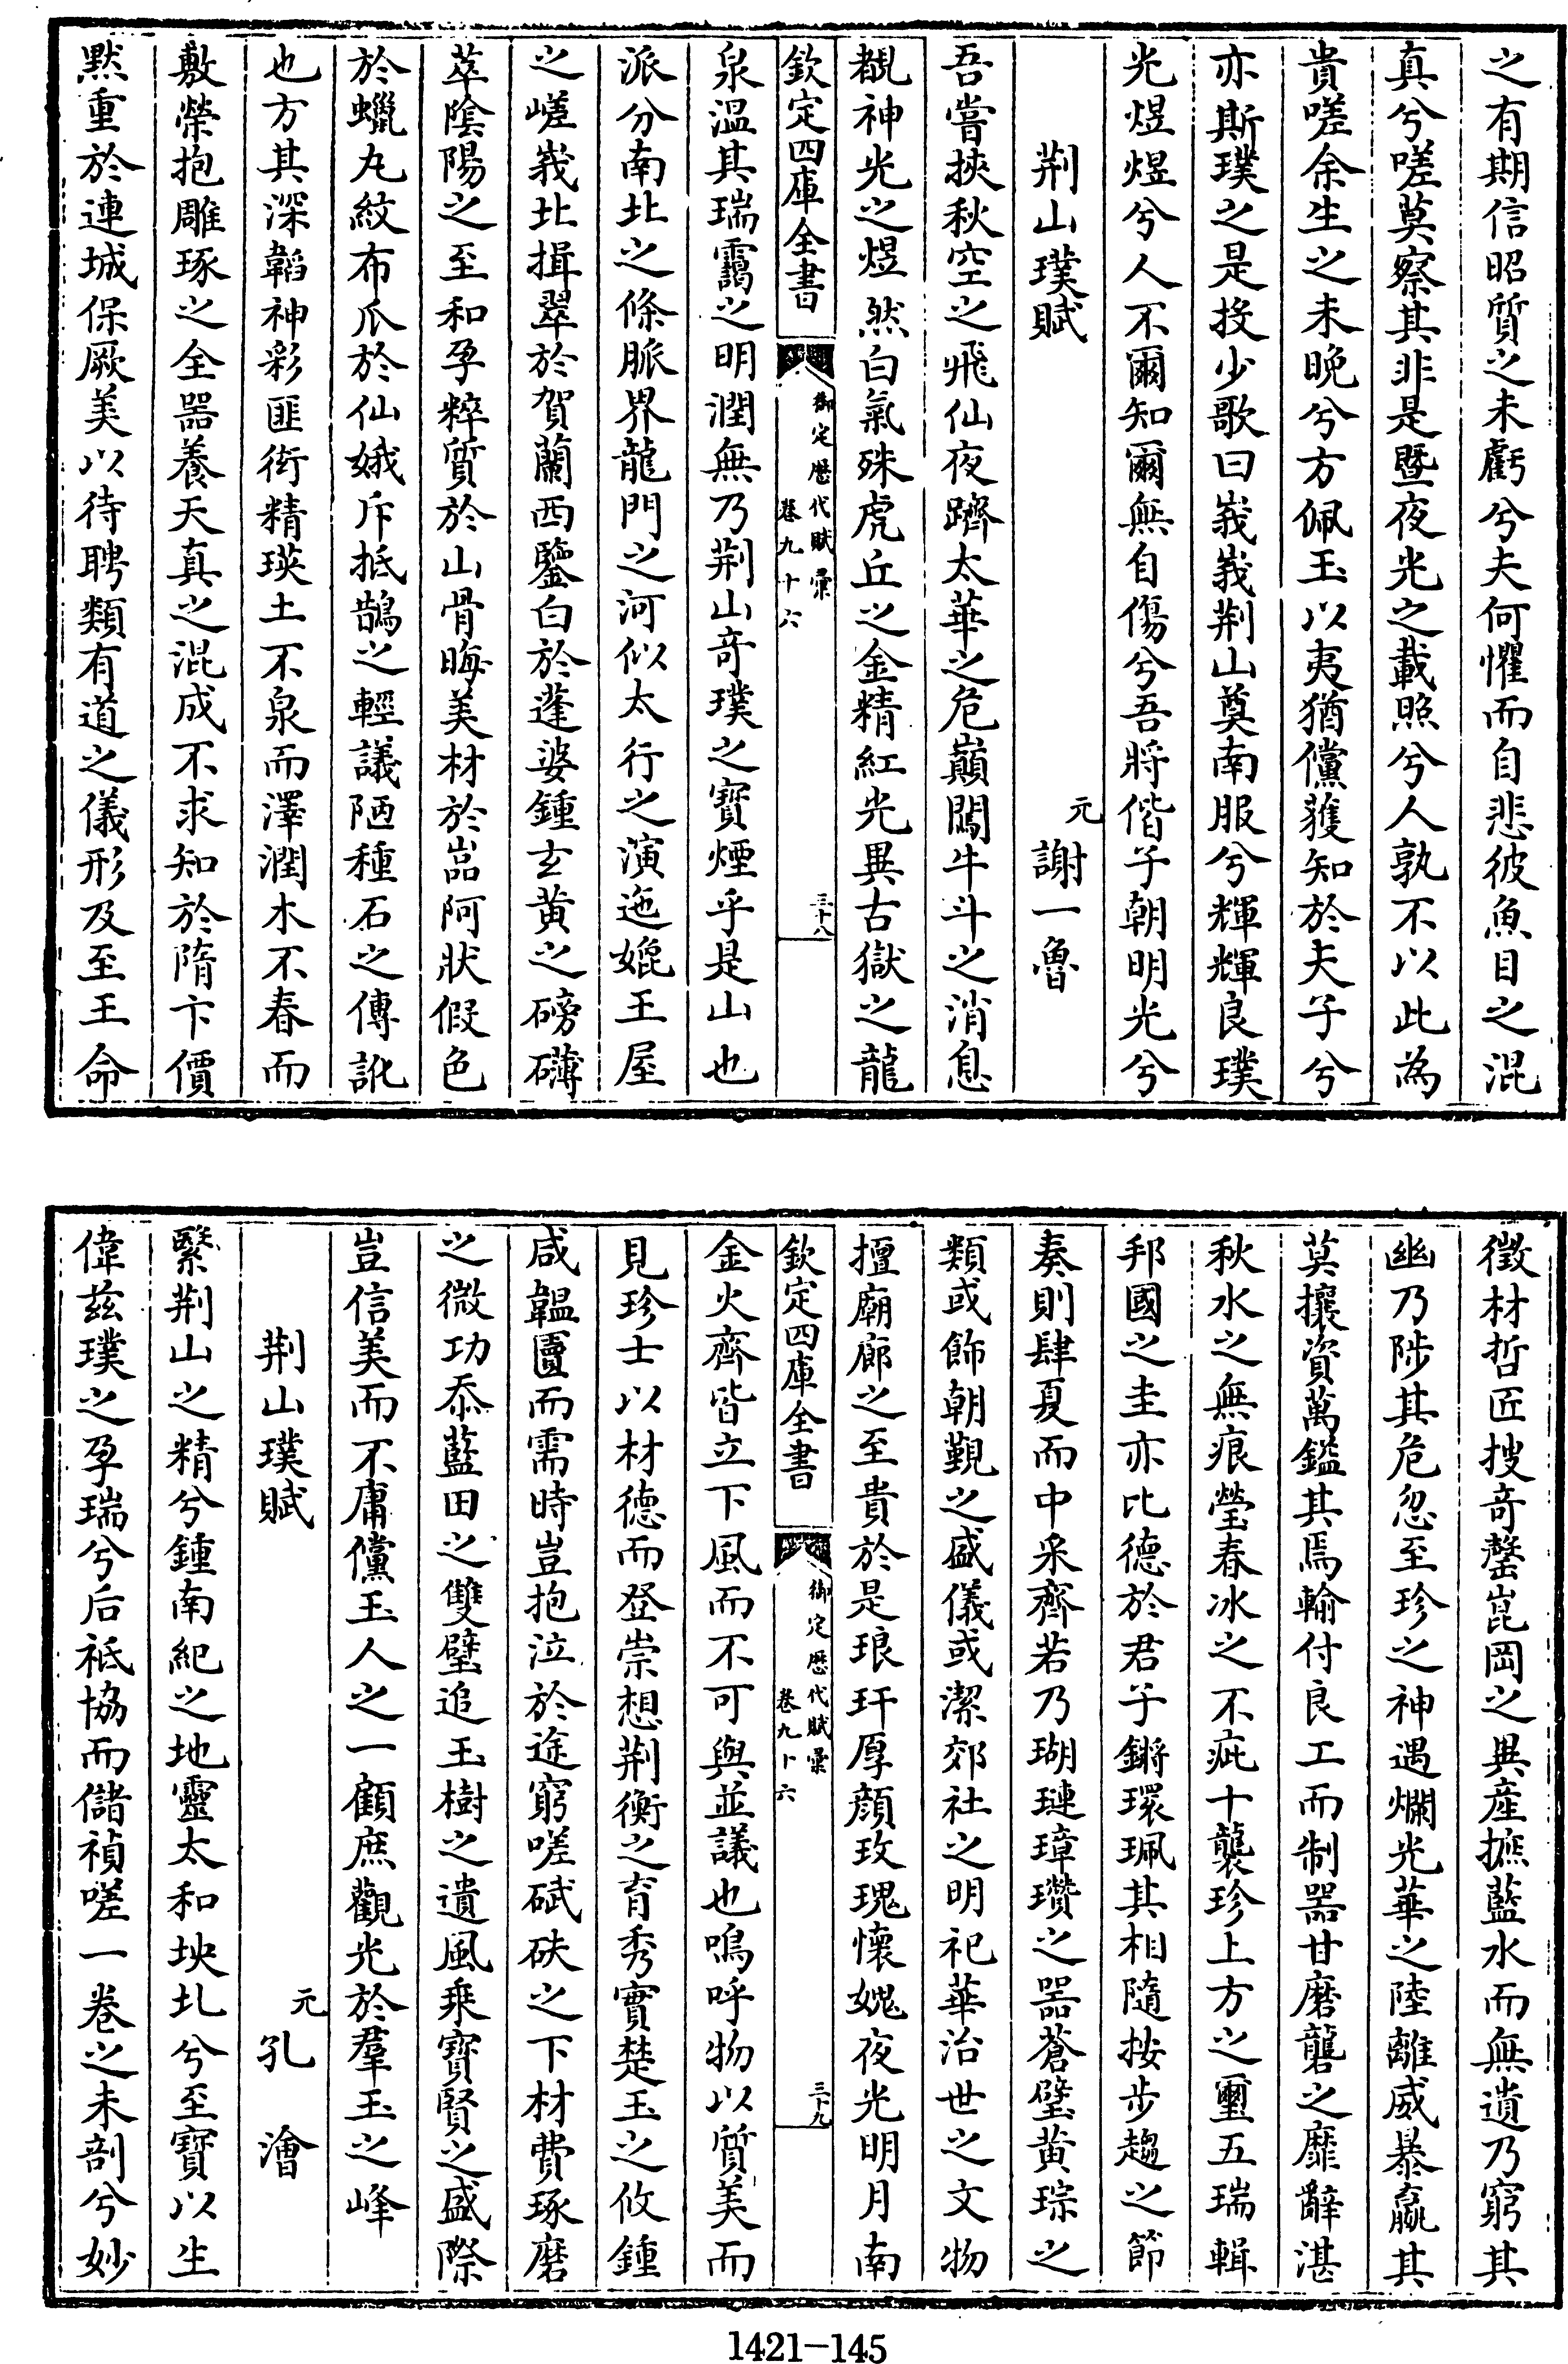 之有期信昭質之未虧兮夫何懼而自悲彼魚目之混
真兮嗟莫察其非是暨夜光之載照兮人孰不以此為
貴嗟余生之未晚兮方佩玉以夷猶儻獲知於夫子兮
亦斯璞之是投少歌曰峩峩荆山奠南服兮輝輝良璞
光煜煜兮人不爾知爾無自傷兮吾將偕子朝明光兮
荆山璞賦
元謝一魯
吾嘗挾秋空之飛仙夜躋太華之危巔闖牛斗之消息
覩神光之煜然白氣殊虎丘之金精紅光異古獄之龍
欽定四庫全書
御定歷代賦彙
卷九十六
三十八
泉温其瑞靄之明潤無乃荆山奇璞之寶煙乎是山也
派分南北之條脈界龍門之河似太行之演迤媲王屋
之嵯峩北揖翠於賀蘭西鑒白於蓬婆鍾玄黄之磅礴
萃隂陽之至和孕粹質於山骨晦美材於嵓阿狀假色
於蠟丸紋布爪於仙娥斥抵鵲之輕議陋種石之傳訛
也方其深韜神彩匪衒精瑛土不泉而澤潤木不春而
敷榮抱雕琢之全器養天真之混成不求知於隋卞價
黙重於連城保厥美以待聘類有道之儀形及至王命
徴材哲匠搜奇鑿崑岡之異産摭藍水而無遺乃窮其
幽乃陟其危忽至珍之神遇爛光華之陸離威暴嬴其
莫攘資萬鎰其焉輸付良工而制器甘磨礱之靡辭湛
秋水之無痕瑩春冰之不疵十襲珍上方之璽五瑞輯
邦國之圭亦比德於君子鏘環珮其相隨按歩趨之節
奏則肆夏而中采齊若乃瑚璉璋瓚之器蒼璧黄琮之
類或飾朝覲之盛儀或潔郊社之明祀華治世之文物
擅廟廊之至貴於是琅玕厚顔玫瑰懷媿夜光明月南
欽定四庫全書
御定歷代賦彙
卷九十六
三十九
金火齊皆立下風而不可與並議也嗚呼物以質美而
見珍士以材德而登崇想荆衡之育秀實楚玉之攸鍾
咸韞匵而需時豈抱泣於途窮嗟碔砆之下材費琢磨
之微功忝藍田之雙璧追玉樹之遺風乗寳賢之盛際
豈信美而不庸儻玉人之一顧庶觀光於羣玉之峰
荆山璞賦
元孔澮
繄荆山之精兮鍾南紀之地靈太和坱圠兮至寶以生
偉兹璞之孕瑞兮后祗協而儲禎嗟一卷之未剖兮妙
1421-145